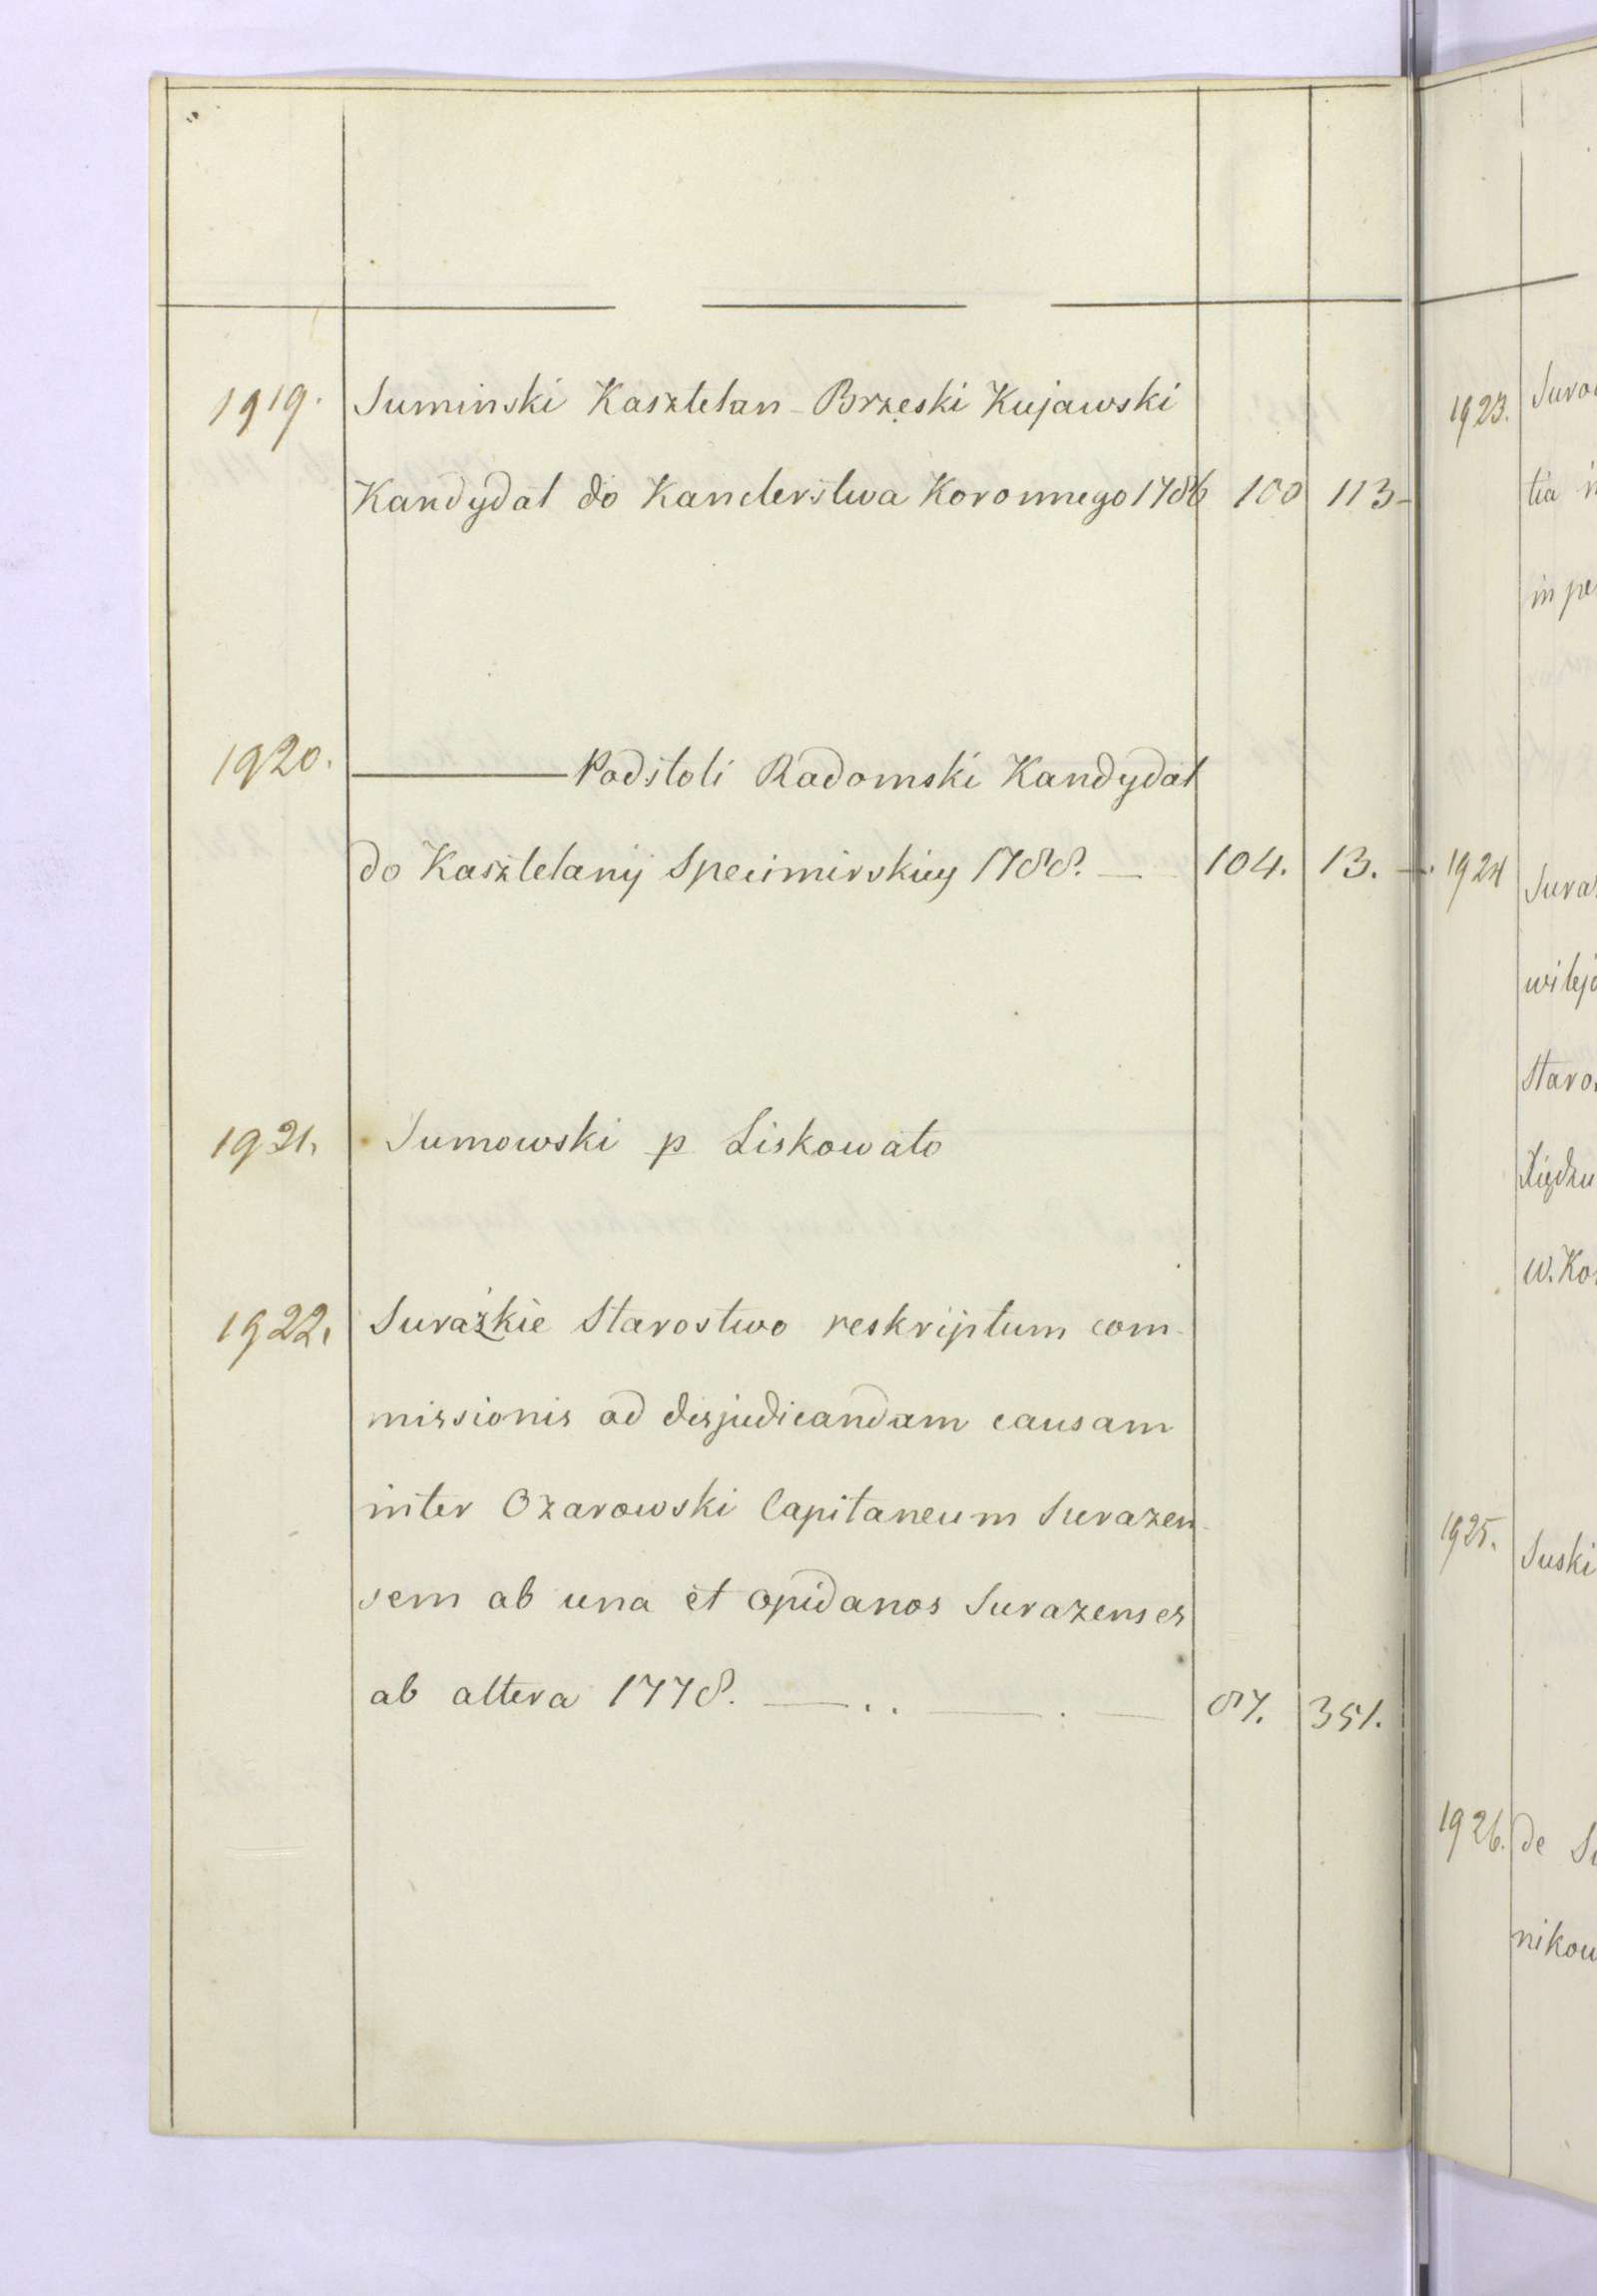 1919. Suminski Kasztelan Brzeski Kujawski
Kandydat do Kanclerstwa Koronnego 1786 100 113-
1920. ——— Podstoli Radomski Kandydat
do Kasztelanij Specimirskiey 1788. — 104. 13. -
1921. Sumowski p Liskowato
1922. Surażkie Starostwo reskriptum com-
missionis ad disjudicandam causam
inter Ożarowski Capitaneum Surazen-
sem ab una et opidanos Surazenses
ab altera 1778. — . . — . — 87. 351.
1923.
tia
in pe
1924
Staro
w. Ko
1925. Suski
1926. de
nikow